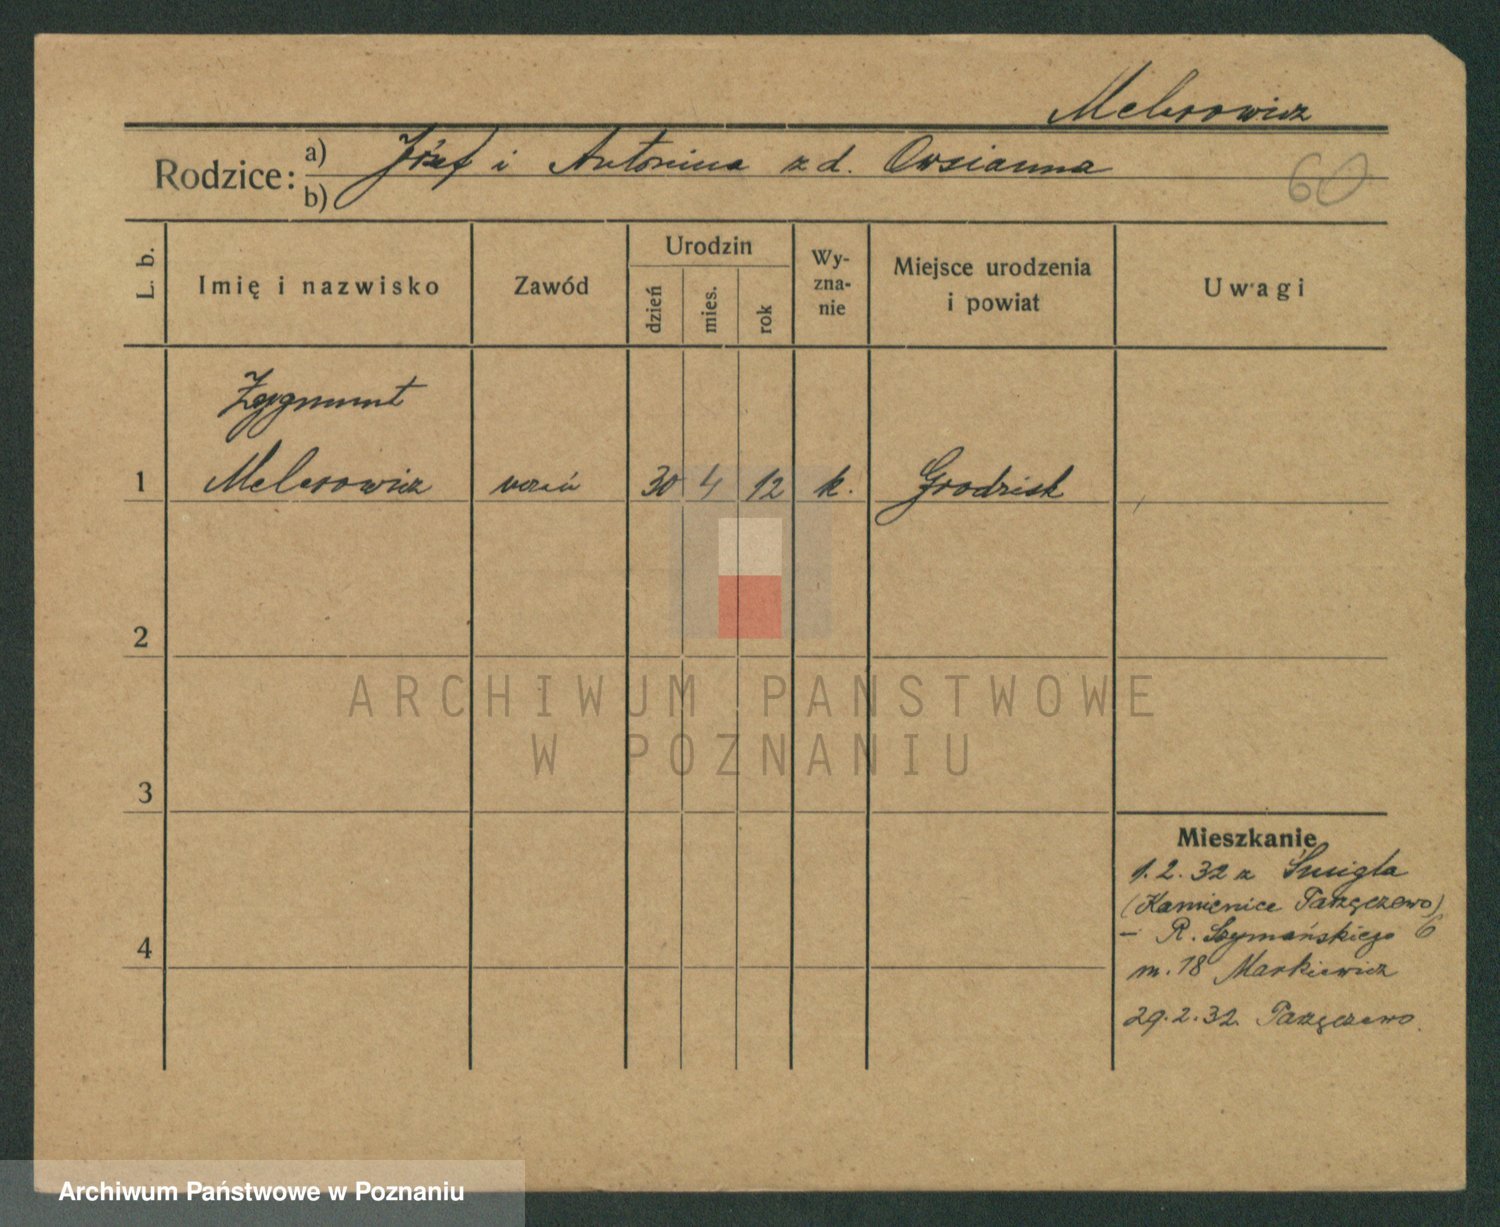 Melerowicz
Rodzice: a) Józef i Antonina z d. Owsianna
b)
60
L. b.
Imię i nazwisko
Zawód
Urodzin
dzień
mies.
rok
Wy-
zna-
nie
Miejsce urodzenia
i powiat
Uwagi
Zygmunt
1 Melerowicz uczeń 30 4 12 k. Grodzisk
2
ARCHIWUM PAŃSTWOWE
W POZNANIU
3
Mieszkanie
1.2.32 z Śmigla
(Kamienice Parzęczewo)
– R. Szymańskiego 6
4
m. 18 Markiewicz
29.2.32 Parzęczewo.
Archiwum Państwowe w Poznaniu